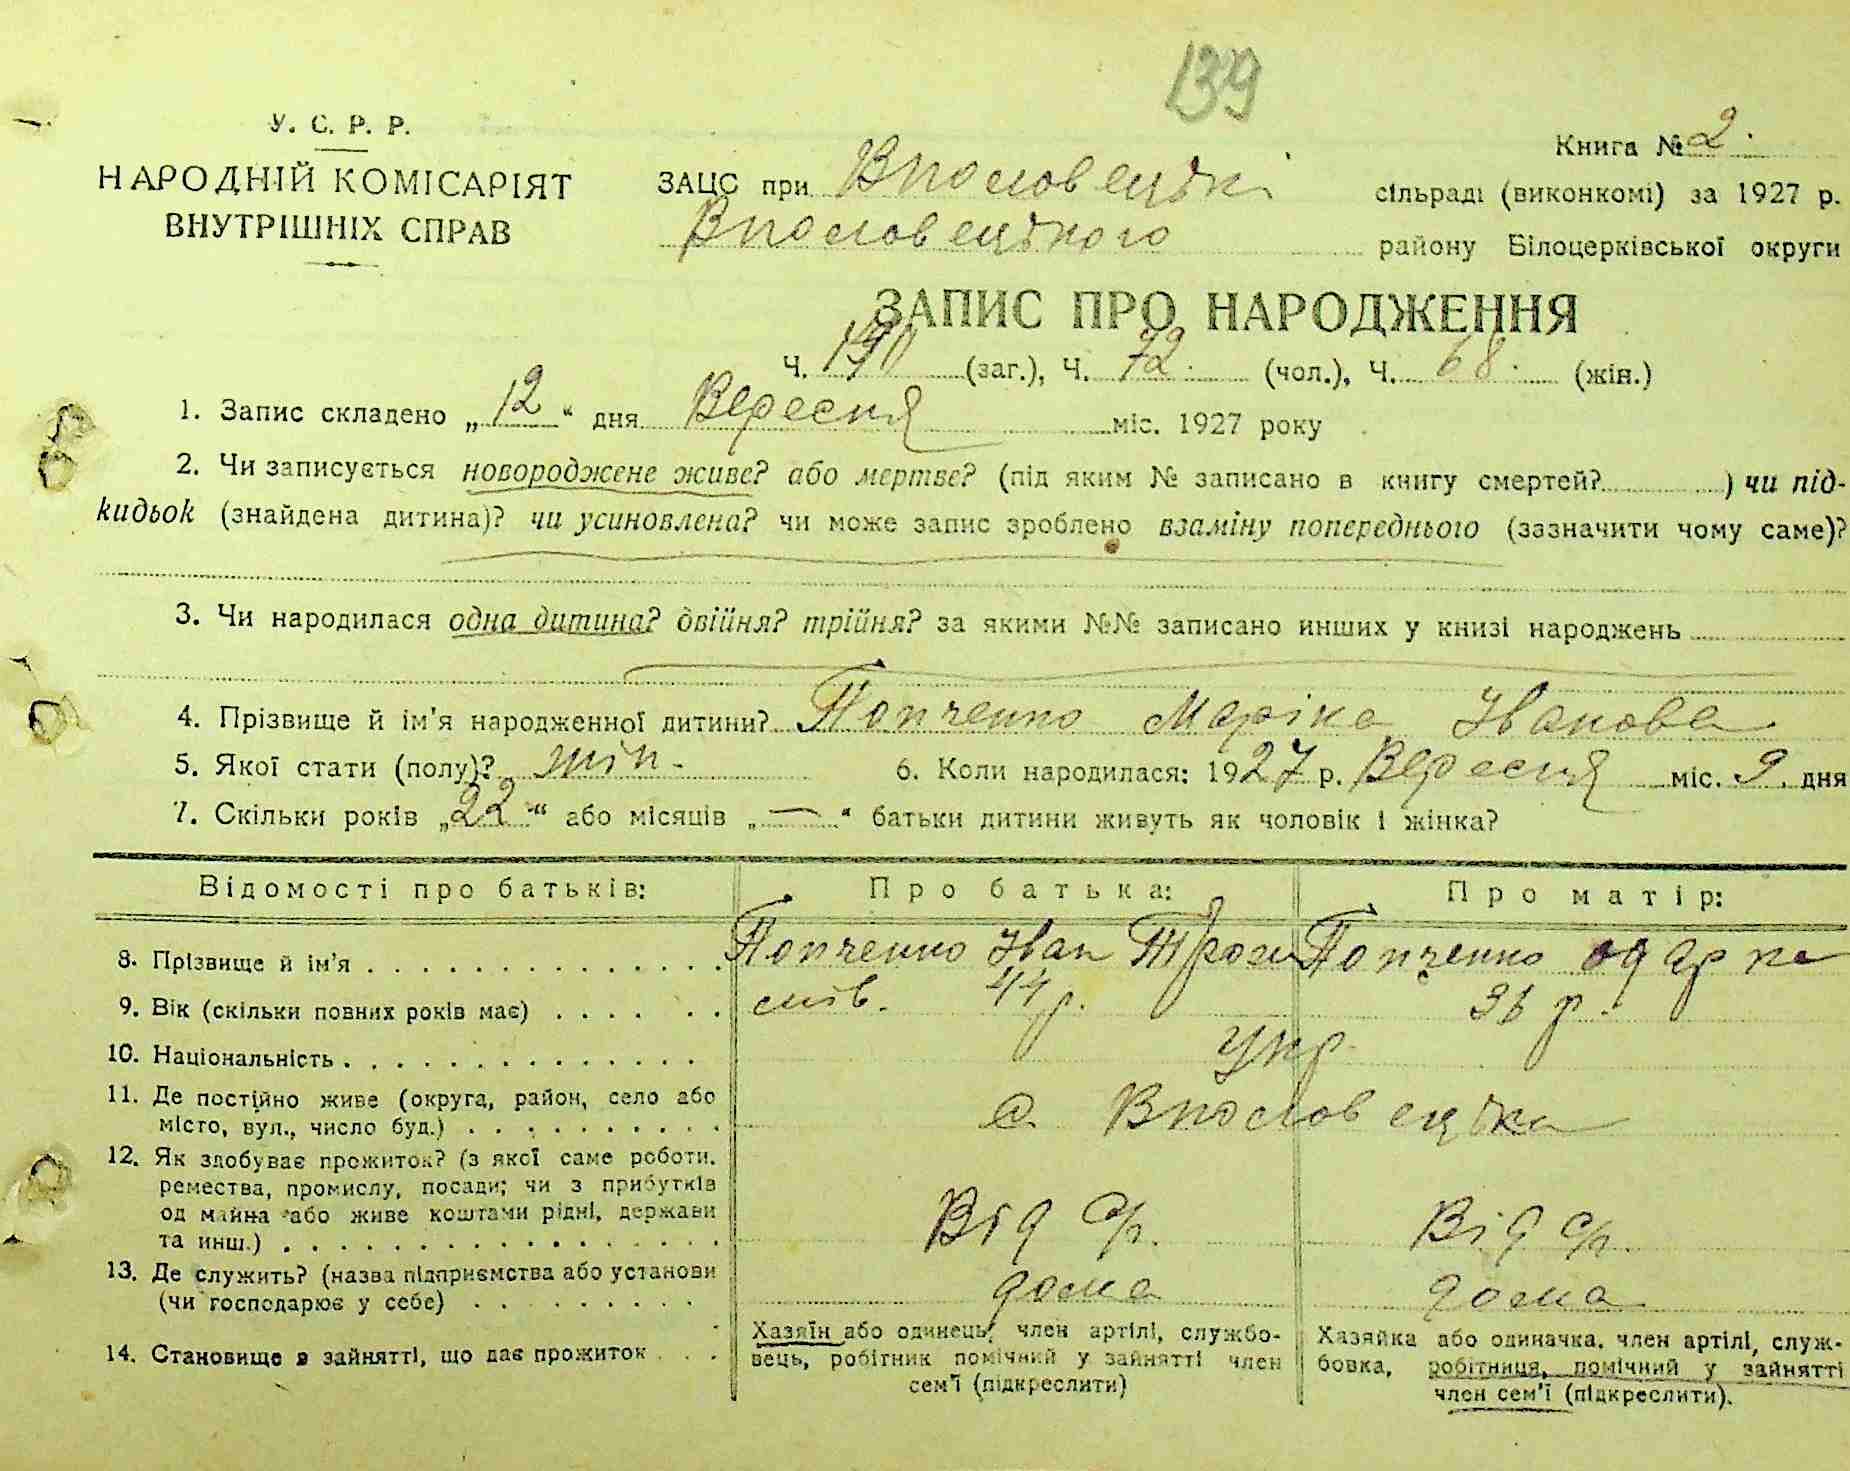 139
У. С. Р. Р.
НАРОДНІЙ КОМІСАРІЯТ
ВНУТРІШНІХ СПРАВ
Книга № 2.
ЗАЦС при Вполовецькі сільраді (виконкомі) за 1927 р.
Вполовецького району Білоцерківської округи
ЗАПИС ПРО НАРОДЖЕННЯ
Ч. 140 (заг.), Ч. 72. (чол.), Ч. 68. (жін.)
1. Запис складено „12“ дня Вересня міс. 1927 року
2. Чи записується новороджене живе? або мертве? (під яким № записано в книгу смертей? ) чи під-
кидьок (знайдена дитина)? чи усиновлена? чи може запис зроблено взаміну попереднього (зазначити чому саме)?
3. Чи народилася одна дитина? двійня? трійня? за якими №№ записано инших у книзі народжень
4. Прізвище й ім'я народженної дитини? Попченко Маріка Іванова
5. Якої стати (полу)? жін. 6. Коли народилася: 1927 р. Вересня міс. 9. дня
7. Скільки років „22“ або місяців „—“ батьки дитини живуть як чоловік і жінка?
Відомості про батьків: Про батька: Про матір:
8. Прізвище й ім'я . . . . . . . . . . . . . . Попченко Іван Попченко Одарка
9. Вік (скільки повних років має) . . . . . . 44 р. 36 р.
10. Національність . . . . . . . . . . . . . . Укр.
11. Де постійно живе (округа, район, село або
місто, вул., число буд.) . . . . . . . . . . с. Вполовецька
12. Як здобуває прожиток? (з якої саме роботи,
ремества, промислу, посади; чи з прибутків
од майна або живе коштами рідні, держави
та инш.) . . . . . . . . . . . . . . . . . Від ср. Від ср.
13. Де служить? (назва підприємства або установи
(чи господарює у себе) . . . . . . . . . дома дома
14. Становище в зайнятті, що дає прожиток . . .
Хазяїн або одинець, член артілі, службо-
вець, робітник помічний у зайнятті член
сем'ї (підкреслити)
Хазяйка або одиначка, член артілі, служ-
бовка, робітниця, помічний у зайнятті
член сем'ї (підкреслити).